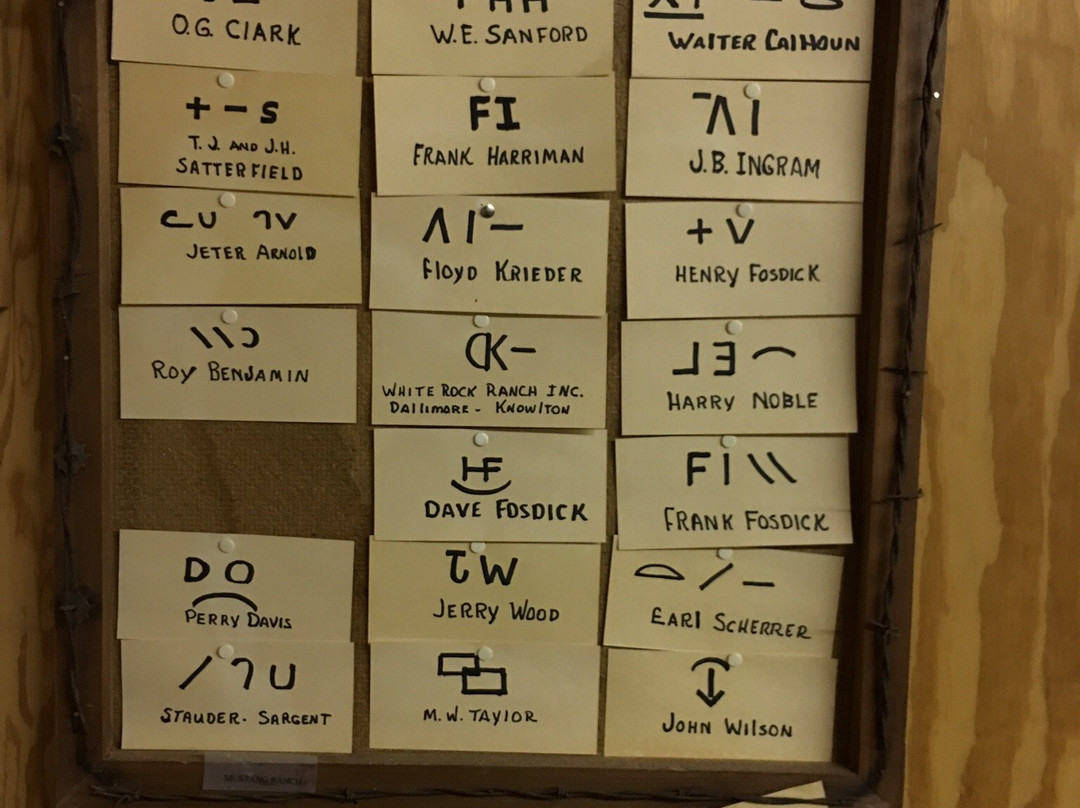 O.G. CLARK
W.E. SANFORD
WALTER CALHOUN
+ – S
T.J. AND J.H.
SATTERFIELD
FI
FRANK HARRIMAN
J.B. INGRAM
JETER ARNOLD
FLOYD KRIEDER
+ V
HENRY FOSDICK
ROY BENJAMIN
K –
WHITE ROCK RANCH INC.
DALLIMORE - KNOWLTON
HARRY NOBLE
HF
DAVE FOSDICK
F I \\
FRANK FOSDICK
D O
PERRY DAVIS
W
JERRY WOOD
EARL SCHERRER
STAUDER - SARGENT
M.W. TAYLOR
JOHN WILSON
MUSTANG RANCH